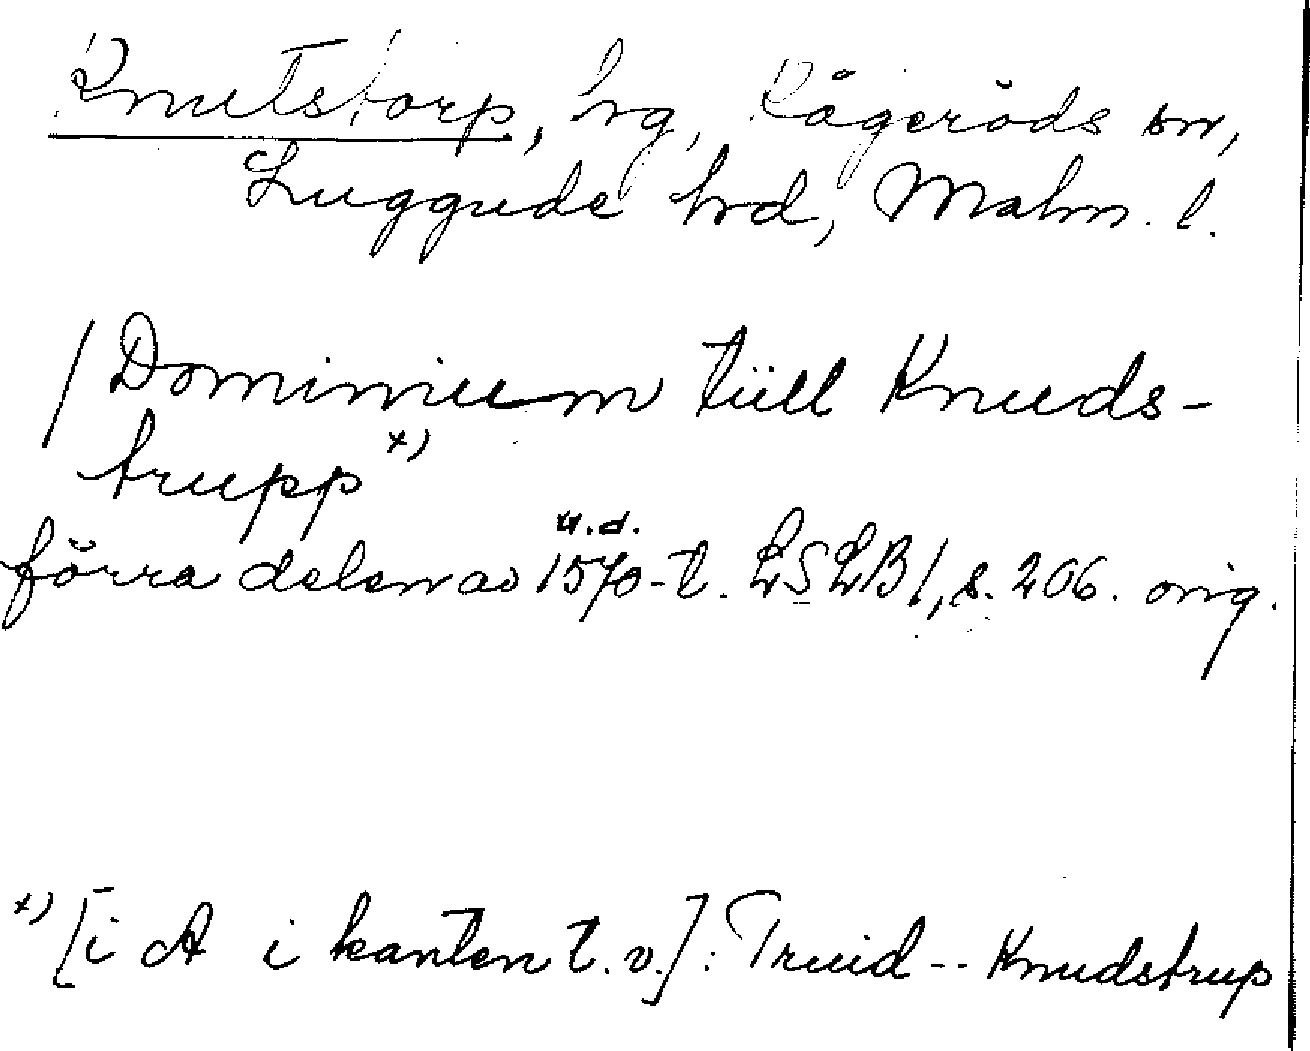 Knutstorp, hg, Kågeröds sn,
Luggude hrd, Malm. l.
/ Dominium tiill Knuds-
trupp x)
u.d.
förra delen av 1570-t. LSLB 1, s. 206. orig.
x) [i A i kanten t. v.]: Truid -- Knudstrup